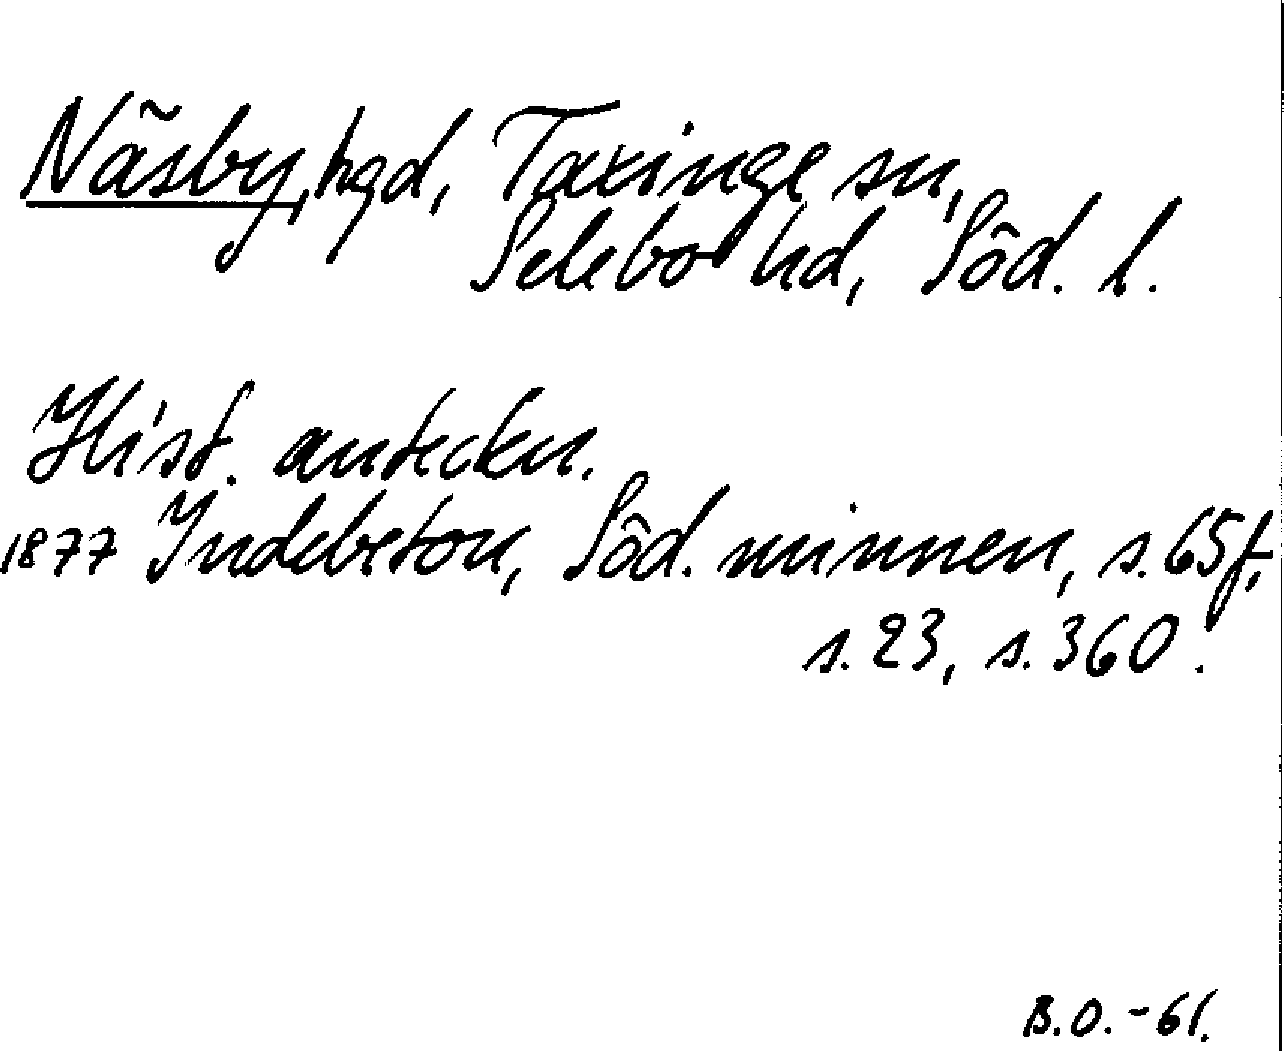 Näsby, hgd, Taxinge sn,
Selebo hd, Söd. l.
Hist. anteckn.
1877 Indebetou, Söd. minnen, s. 65f,
s. 23, s. 360.
B.O.-61.